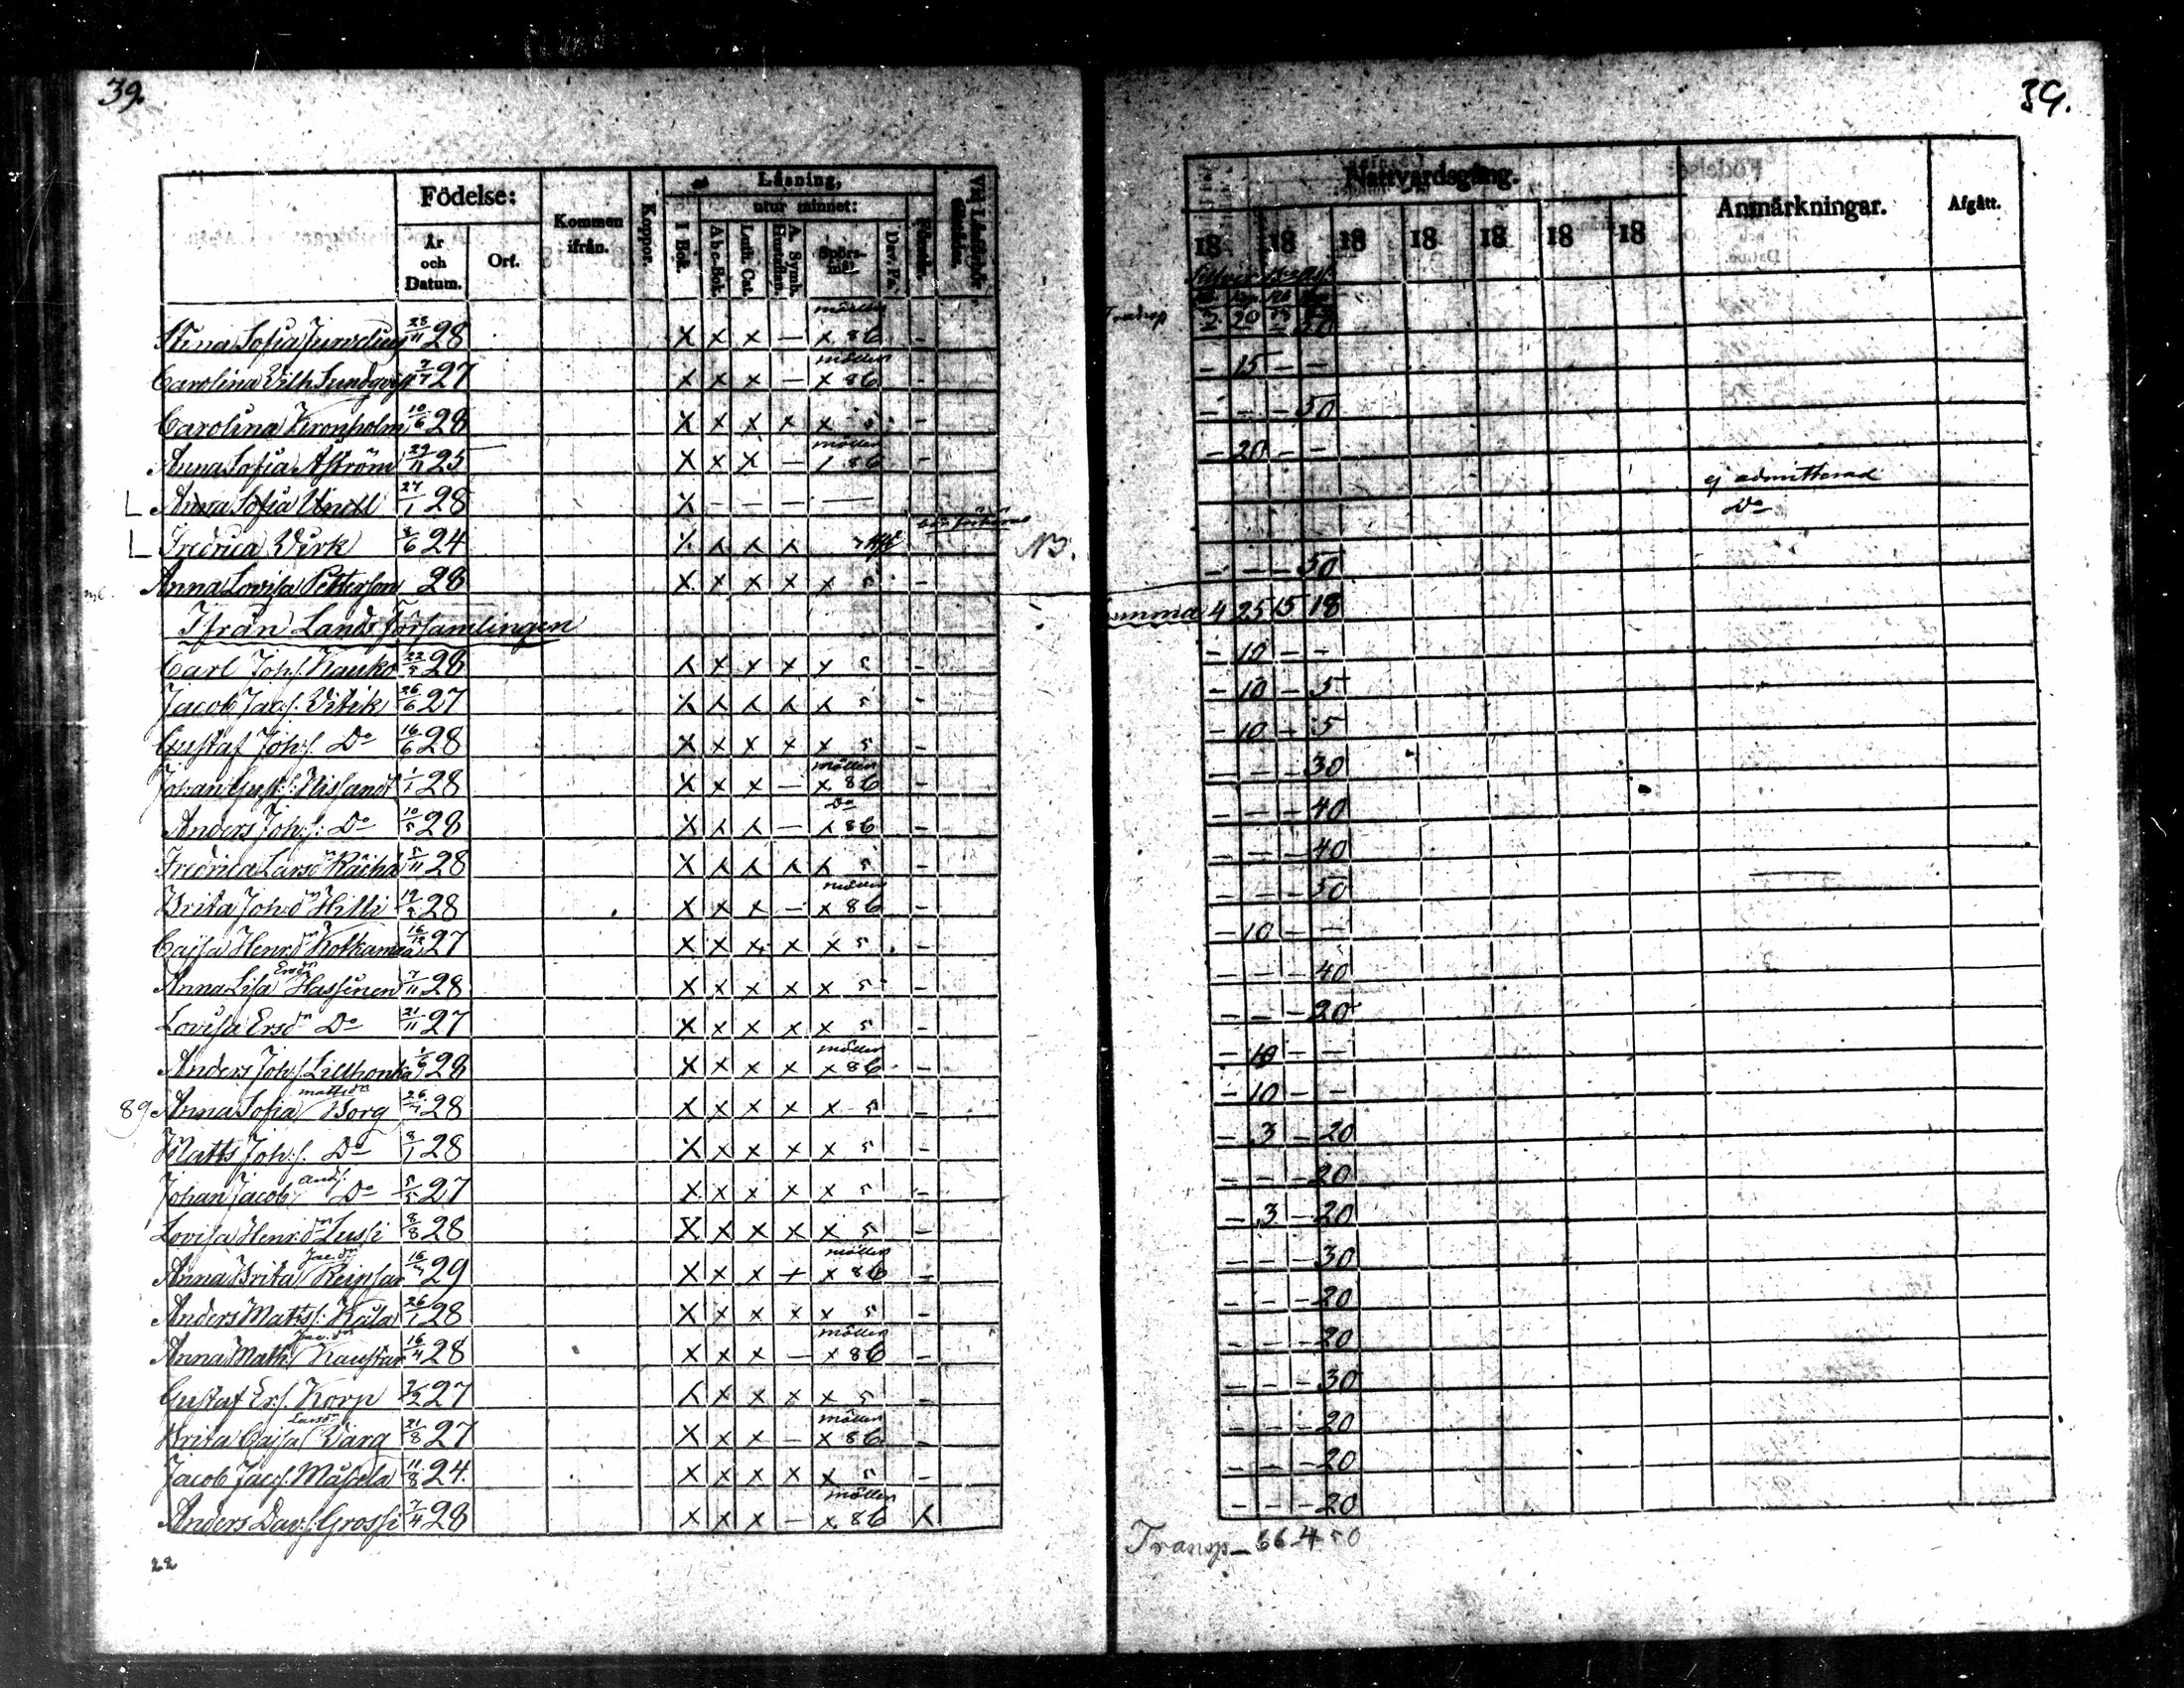 39.
Födelse:
År och Datum.
Ort.
Kommen ifrån.
Koppor.
Läsning,
utur minnet:
I Bok.
Abc-Bok.
Luth. Cat.
A. Symb. Hustaflan.
Spörsmål
Dav. Ps.
Vid Läseförhör
Stina Sofia 28/11 28 x x x — x möller 86 –
Carolina Vilh. Sundqvist 27 x x x — x möller 86 –
Carolina Kronholm 10/6 28 x x x x x 5 –
Anna Sofia Åström 29/11 25 x x x — / möller 86 –
L Anna Sofia 27/1 28 x – – – —
L Fredrica Virk 8/6 24 x x x x
Anna Lovisa Petterson 28 x x x x x 5 –
Ifrån Lands Församlingen
Carl Joh:s. Kauko 28 x x x x x 5 –
Jacob Jac:s. Vitik 26/6 27 x x x x x 5 –
Gustaf Joh:s. Do 16/6 28 x x x x x 5 –
Johan Gust:s. Nissandt 1/1 28 x x x — x möller 86 –
Anders Joh:s. Do 10/5 28 x x x — x Do 86 –
Fredrica Larsdn Räihä 5/11 28 x x x x x 5 –
Brita Joh:dn Hilli 28 x x x – x möller 86 –
Cajsa Henr:dn Kotkamaa 16/12 27 x x x x x 5 –
Anna Lisa Ersdn Hassinen 7/11 28 x x x x x 5 –
Lovisa Ersdn Do 21/11 27 x x x x x 5 –
Anders Joh:s. Lillhonka 1/6 28 x x x x x möller 86 –
89 Anna Sofia Mattsdn Borg 28 x x x x x 5 –
Matts Joh:s. Do 8/1 28 x x x x x 5 –
Johan Jacob And:s. Do 5/5 27 x x x x x 5 –
Lovisa Henr:dn Lussi 8/8 28 x x x x x 5 –
Anna Brita Jac:dn Reipsar 29 x x x + x möller 86 –
Anders Matts:s. Kåla 26/1 28 x x x x x 5 –
Anna Math. Jac:dn Kaustar 28 x x x — x möller 86 –
Gustaf Er:s. Korp 2/2 27 x x x x x 5 –
Brita Cajsa Larsdn Varg 21/8 27 x x x – x möller 86 –
Jacob Jac:s. Måsala 11/8 24. x x x x x 5 –
Anders Dav:s. Grossi 7/4 28 x x x – x möller 86 x
22
39.
Nattvardsgång.
18 18 18 18 18 18 18
Anmärkningar.
Afgått.
Silfver
Transp
– 15 – –
– – – 50
– 20 – –
ej admitterad
Do
N3.
– – – 50
Summa 4 25 15 18
– 10 – –
– 10 – 5
– 10 – 5
– – – 30
– – – 40
– – – 40
– – – 50
– 10 – –
– – – 40
– – – 20
– 10 – –
– 10 – –
– 3 – 20
– – – 20
– 3 – 20
– – – 30
– – – 20
– – – 20
– – – 30
– – – 20
– – – 20
– – – 20
Transp – 66 4 50